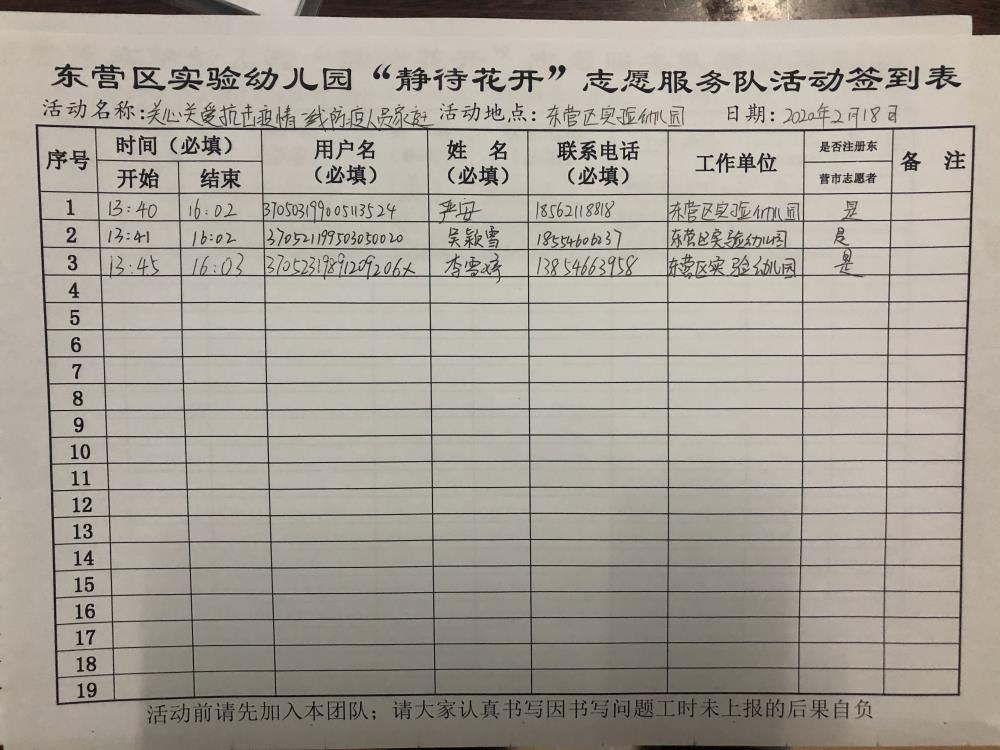 东营区实验幼儿园“静待花开”志愿服务队活动签到表
活动名称:关心关爱抗击疫情一线防疫人员家庭 活动地点: 东营区实验幼儿园 日期: 2020年2月18日
序号 时间（必填） 用户名（必填） 姓 名（必填） 联系电话（必填） 工作单位 是否注册东营市志愿者 备 注
开始 结束
1 13:40 16:02 370503199005113524 严安 18562118818 东营区实验幼儿园 是
2 13:41 16:02 370521199503050020 吴颖雪 18554606237 东营区实验幼儿园 是
3 13:45 16:03 37052319891209206X 李雪婷 13854663958 东营区实验幼儿园 是
4
5
6
7
8
9
10
11
12
13
14
15
16
17
18
19
活动前请先加入本团队；请大家认真书写因书写问题工时未上报的后果自负